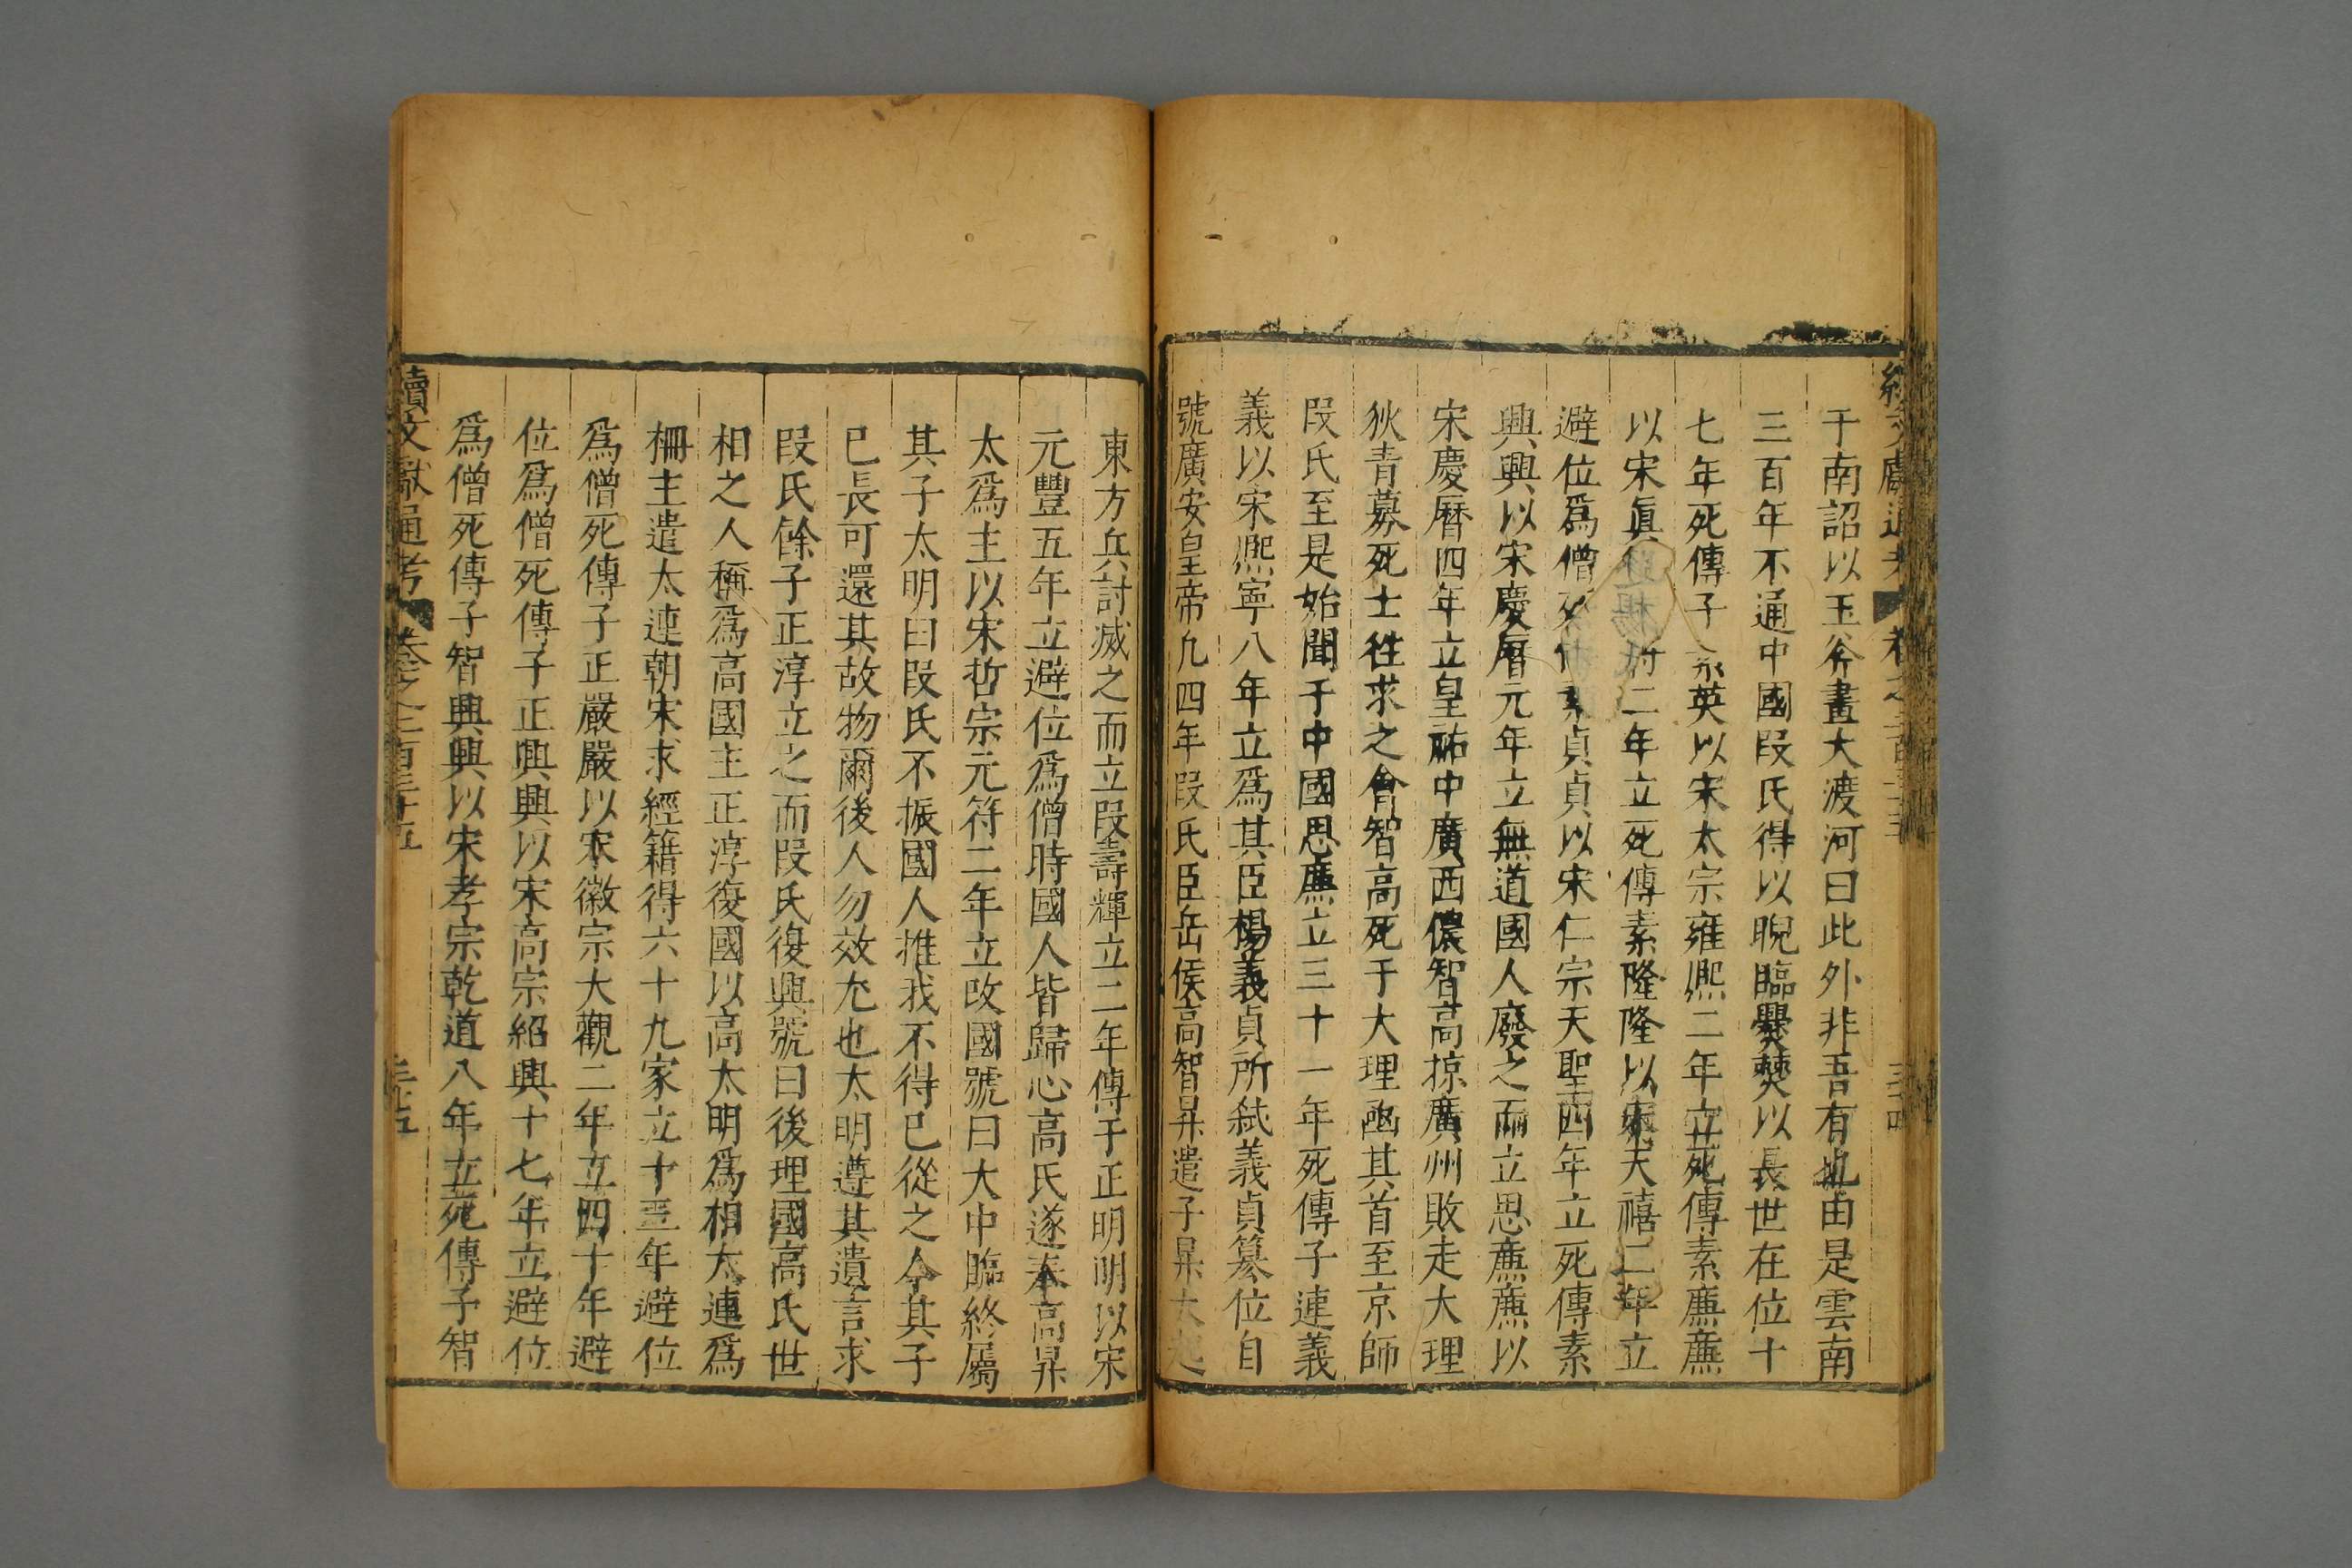 于南詔以玉斧畫大渡河曰此外非吾有也由是雲南
三百年不通中國段氏得以睨臨爨僰以長世在位十
七年死傳子素英以宋太宗雍熈二年立死傳素廉廉
以宋眞 二年立死傳素隆隆以宋天禧二年立
避位爲僧死 素貞貞以宋仁宗天聖四年立死傳素
興興以宋慶曆元年立無道國人廢之而立思廉廉以
宋慶曆四年立皇祐中廣西儂智高掠廣州敗走大理
狄青募死士徃求之會智高死于大理凾其首至京師
段氏至是始聞于中國思廉立三十一年死傳子連義
義以宋熈寧八年立爲其臣楊義貞所弒義貞簒位自
號廣安皇帝九四年段氏臣岳侯高智昇遣子昇太起
東方兵討滅之而立段壽輝立二年傳于正明明以宋
元豐五年立避位爲僧時國人皆歸心高氏遂奉高昇
太爲主以宋哲宗元符二年立改國號曰大中臨終屬
其子太明曰段氏不振國人推我不得已從之今其子
已長可還其故物爾後人勿效尤也太明遵其遺言求
段氏餘子正淳立之而段氏復興號曰後理國高氏世
相之人稱爲高國主正淳復國以高太明爲相太連爲
柵主遣太連朝宋求經籍得六十九家立十三年避位
爲僧死傳子正嚴嚴以宋徽宗大觀二年立四十年避
位爲僧死傳子正興興以宋高宗紹興十七年立避位
爲僧死傳子智興興以宋孝宗乾道八年立死傳子智
續文獻通考 卷之二百三十五 三十五